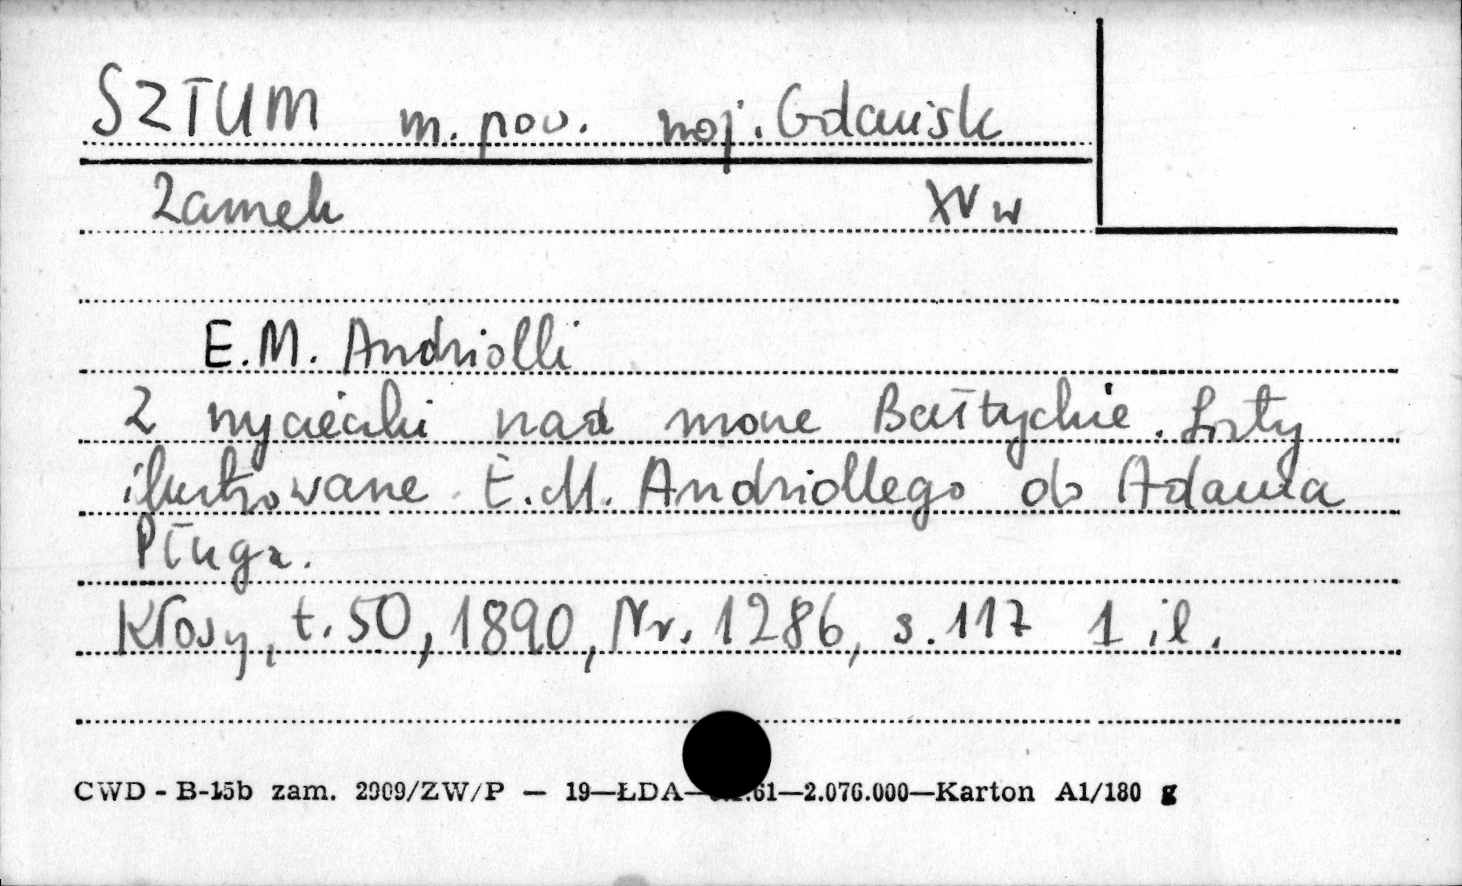 SZTUM m. pow. woj. Gdańsk
Zamek XV w
E.M. Andriolli
Z wycieczki nad morze Bałtyckie. Listy
ilustrowane E.M. Andriollego do Adama
Pługa.
Kłosy, t. 50, 1890, Nr. 1286, s. 117 1 il.
CWD - B-15b zam. 2909/ZW/P — 19—ŁDA— .61—2.076.000—Karton A1/180 g